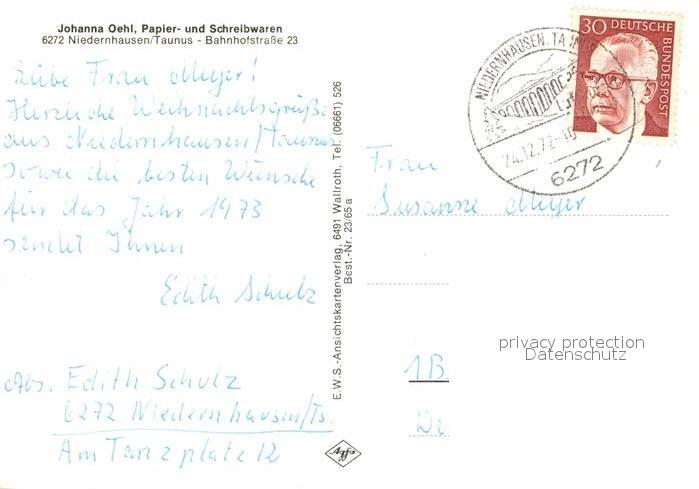 Johanna Oehl, Papier- und Schreibwaren
6272 Niedernhausen/Taunus - Bahnhofstraße 23
Liebe Frau Meyer!
Herzliche Weihnachtsgrüße
aus Niedernhausen/Taunus
sowie die besten Wünsche
für das Jahr 1973
sendet Ihnen
Edith Schulz
Abs. Edith Schulz
6272 Niedernhausen/Ts.
Am Tanzplatz 12
E.W.S.-Ansichtskartenverlag, 6491 Wallroth, Tel. (06661) 526
Best.-Nr. 23/65 a
Agfa
NIEDERNHAUSEN, TAUNUS
24.12.72-10
6272
30 DEUTSCHE
BUNDESPOST
Frau
Susanne Meyer
privacy protection
Datenschutz
1 B